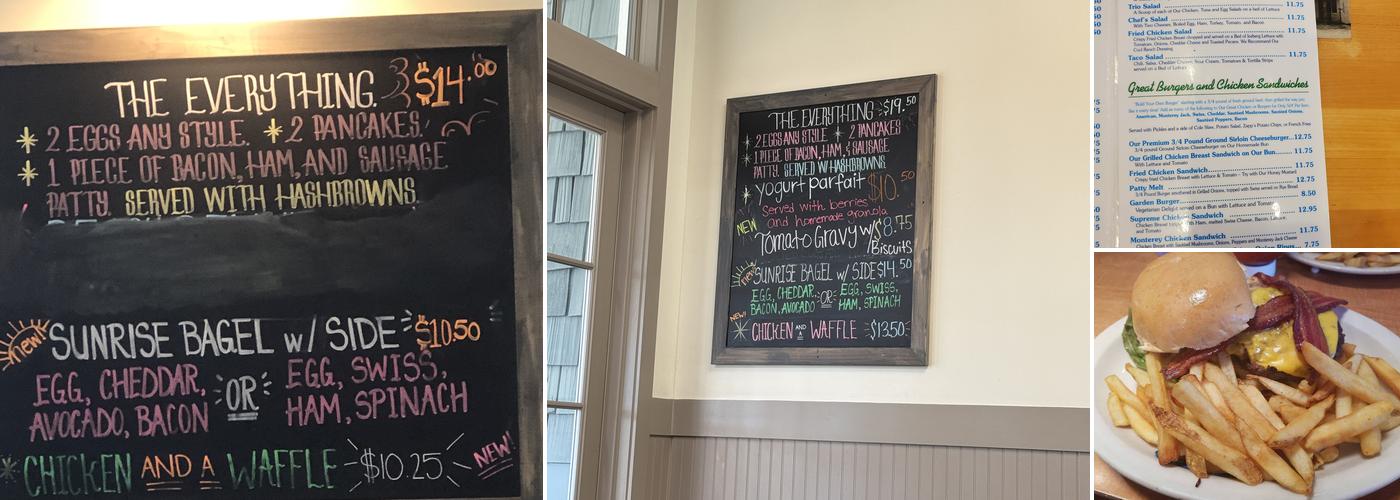 THE EVERYTHING. $14.00
* 2 EGGS ANY STYLE. * 2 PANCAKES.
* 1 PIECE OF BACON, HAM, AND SAUSAGE
PATTY. SERVED WITH HASHBROWNS.
new! SUNRISE BAGEL w/ SIDE $10.50
EGG, CHEDDAR, OR EGG, SWISS,
AVOCADO, BACON HAM, SPINACH
* CHICKEN AND A WAFFLE - $10.25 NEW!
THE EVERYTHING $19.50
* 2 EGGS ANY STYLE * 2 PANCAKES
* 1 PIECE OF BACON, HAM, & SAUSAGE
PATTY. SERVED W/HASHBROWNS.
* yogurt parfait $10.50
Served with berries
and homemade granola
NEW Tomato Gravy w/ $8.75
Biscuits
new! SUNRISE BAGEL w/ SIDE $14.50
EGG, CHEDDAR, OR EGG, SWISS,
BACON, AVOCADO HAM, SPINACH
NEW!
* CHICKEN AND WAFFLE $13.50
Trio Salad 11.75
A Scoop of each of Our Chicken, Tuna and Egg Salads on a bed of Lettuce
Chef's Salad 11.75
With Two Cheeses, Boiled Egg, Ham, Turkey, Tomato, and Bacon.
Fried Chicken Salad 11.75
Crispy Fried Chicken Breast chopped and served on a Bed of Iceberg Lettuce with
Tomatoes, Onions, Cheddar Cheese and Toasted Pecans. We Recommend Our
Cool Ranch Dressing
Taco Salad 11.75
Chili, Salsa, Cheddar Cheese, Sour Cream, Tomatoes & Tortilla Strips
served on a Bed of Lettuce
Great Burgers and Chicken Sandwiches
"Build Your Own Burger" starting with a 3/4 pound of fresh ground beef, then grilled the way you
American, Monterey Jack, Swiss, Cheddar, Sautied Mushrooms, Sautied Onions,
Sautied Peppers, Bacon
Served with Pickles and a side of Cole Slaw, Potato Salad, Zapp's Potato Chips, or French Fries
Our Premium 3/4 Pound Ground Sirloin Cheeseburger...12.75
3/4 pound Ground Sirloin Cheeseburger on Our Homemade Bun
Our Grilled Chicken Breast Sandwich on Our Bun....... 11.75
With Lettuce and Tomato
Fried Chicken Sandwich 11.75
Crispy fried Chicken Breast with Lettuce & Tomato - Try with Our Honey Mustard
Patty Melt 12.75
3/4 Pound Burger smothered in Grilled Onions, topped with Swiss served on Rye Bread
Garden Burger 8.50
Vegetarian Delight served on a Bun with Lettuce and Tomato
Supreme Chicken Sandwich 12.95
Chicken Breast topped with Ham, melted Swiss Cheese, Bacon, Lettuce,
and Tomato
Monterey Chicken Sandwich 11.75
Chicken Breast with Sautied Mushrooms, Onions, Peppers and Monterey Jack Cheese
7.75